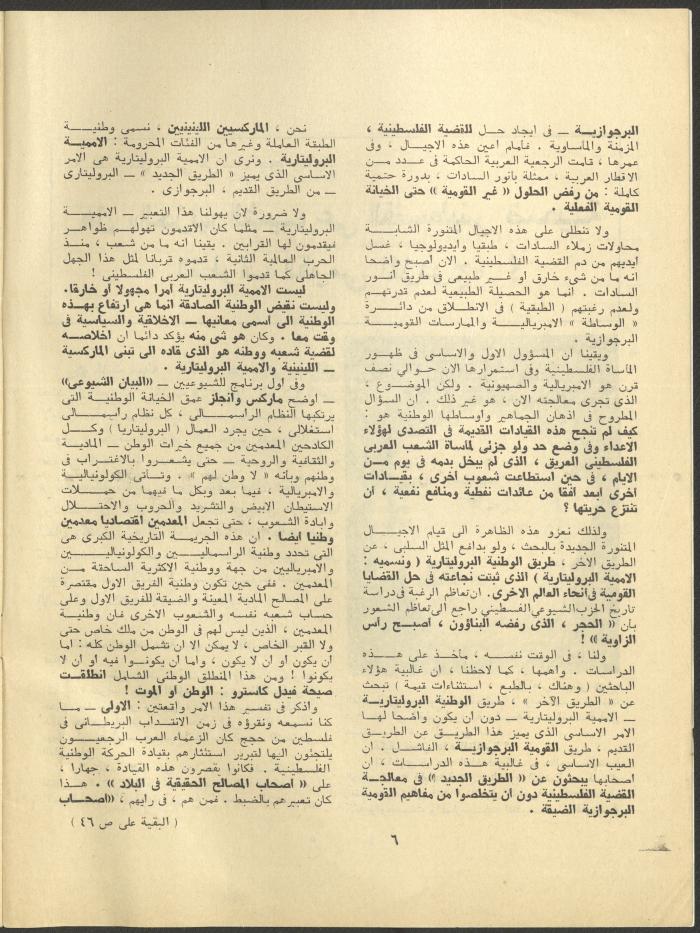 البرجوازيــة ــ في ايجاد حـــل للقضية الفلسطينية ،
المزمنة والماساوية . فأمام اعين هذه الاجيال ، وفي
عمرها ، قامت الرجعية العربية الحاكمة في عــدد مــن
الاقطار العربية ، ممثلة بأنور السادات ، بدورة حتمية
كاملة : من رفض الحلول « غير القومية » حتى الخيانة
القومية الفعلية .
ولا تنطلى على هذه الاجيال المتنورة الشابــــة
محاولات زملاء السادات ، طبقيا وايديولوجيا ، غسل
ايديهم من دم القضية الفلسطينية . الان أصبح واضحا
انه ما من شيء خارق او غــير طبيعى في طريق انــور
السادات . انما هو الحصيلة الطبيعية لعدم قدرتهــم
ولعدم رغبتهم ( الطبقية ) في الانطلاق من دائــــرة
« الوساطة » الامبرياليـة والممارسات القوميــــة
البرجوازية .
ويقينا ان المسؤول الاول والاساسى في ظهــور
المأساة الفلسطينية وفي استمرارها الان حــوالي نصف
قرن هو الامبريالية والصهيونية . ولكن الموضــوع ،
الذى تجرى معالجته الان ، هو غير ذلك . ان السؤال
المطروح في اذهان الجماهير واوساطها الوطنية هو :
كيف لم تنجح هذه القيادات القديمة في التصدى لهؤلاء
الاعداء وفي وضع حد ولو جزئى لمأساة الشعب العربى
الفلسطينى العريق ، الذى لم يبخل بدمه في يوم مــن
الايام ، في حين استطاعت شعوب أخرى ، بقيــادات
اخرى ابعد أفقا من عائدات نفطية ومنافع نفعية ، ان
تنتزع حريتها ؟
ولذلك نعزو هذه الظاهرة الى قيام الاجيـــال
المتنورة الجديدة بالبحث ، ولو بدافع المثل السلبى ، عن
الطريق الآخر ، طريق الوطنية البروليتارية ( ونسميه :
الاممية البروليتارية ) الذى ثبتت نجاعته في حل القضايا
القومية في انحاء العالم الاخرى. ان تعاظم الرغبة في دراسة
تاريخ الحزب الشيوعى الفلسطينى راجع الى تعاظم الشعور
بأن « الحجر ، الذى رفضه البناؤون ، أصبــح رأس
الزاوية » !
ولنا ، في الوقت نفســه ، مآخــذ على هــذه
الدراسات . واهمها ، كما لاحظنا ، ان غالبية هؤلاء
الباحثين ( وهناك ، بالطبع ، استثناءات قيمة ) تبحث
عن « الطريق الآخر » ، طريق الوطنية البروليتاريــة
ــ الاممية البروليتارية ــ دون ان يكون واضحا لهــا
الامر الاساسى الذى يميز هذا الطريــق عن الطريــق
القديم ، طريق القومية البرجوازيــة ، الفاشــل . ان
العيب الاساسى ، في غالبية هــذه الدراسات ، ان
اصحابها يبحثون عن « الطريق الجديد » في معالجـــة
القضية الفلسطينية دون ان يتخلصوا من مفاهيم القومية
البرجوازية الضيقة .
نحن ، الماركسيين اللينينيين ، نسمى وطنيـــة
الطبقة العاملة وغيرها من الفئات المحرومة : الامميــة
البروليتارية . ونرى ان الاممية البروليتارية هى الامر
الاساسى الذى يميز « الطريق الجديد » ــ البروليتارى
ــ من الطريق القديم ، البرجوازى .
ولا ضرورة لان يهولنا هذا التعبير ــ الامميــة
البروليتارية ــ مثلما كان الاقدمون تهولهــم ظواهــر
فيقدمون لها القرابين . يقينا انه ما من شعب ، منــذ
الحرب العالمية الثانية ، قدموه قربانا لمثل هذا الجهل
الجاهلى كما قدموا الشعب العربى الفلسطينى !
ليست الاممية البروليتارية امرا مجهولا او خارقا.
وليست نقيض الوطنية الصادقة انما هى ارتفاع بهــذه
الوطنية الى أسمى معانيها ــ الاخلاقية والسياسية في
وقت معا . وكان هو شى منه يؤكد دائما ان اخلاصــه
لقضية شعبه ووطنه هو الذى قاده الى تبنى الماركسية
ــ اللينينية والاممية البروليتارية .
وفي اول برنامج للشيوعيين ــ «البيان الشيوعى»
ــ اوضح ماركس وانجلز عمق الخيانة الوطنيــة التى
يرتكبها النظام الراسمــالى ، كل نظام راسمــالى
استغلالى ، حين يجرد العمال ( البروليتاريا ) وكــل
الكادحين المعدمين من جميع خيرات الوطن ــ الماديــة
والثقافية والروحية ــ حتى يشعــروا بالاغتــراب في
وطنهم وبأنه « لا وطن لهم » . وتــأتى الكولونياليــة
والامبريالية ، فيما بعد وبكل ما فيهما من حمــلات
الاستيطان الابيض والتشريد والحروب والاحتــلال
وابادة الشعوب ، حتى تجعل المعدمين اقتصاديا معدمين
وطنيا ايضا . ان هذه الجريمــة التاريخية الكبرى هى
التى تحدد وطنية الراسماليــين والكولونياليــين
والامبرياليين من جهة ووطنية الاكثرية الساحقة مــن
المعدمين . ففى حين تكون وطنية الفريق الاول مقتصرة
على المصالح المادية المعينة والضيقة للفريق الاول وعلى
حساب شعبه نفسه والشعوب الاخرى فان وطنيــة
المعدمين ، الذين ليس لهم في الوطن من ملك خاص حتى
ولا القبر الخاص ، لا يمكن الا ان تشمل الوطن كله : اما
ان يكون او ان لا يكون ، واما ان يكونــوا فيه او ان لا
يكونوا ! ومن هذا المنطلق الوطنى الشامل انطلقــت
صيحة فيدل كاسترو : الوطن او الموت !
واذكر في تفسير هذا الامر واقعتين : الاولى ــ مــا
كنا نسمعه ونقرؤه في زمن الانتــداب البريطــانى في
فلسطين من حجج كان الزعماء العرب الرجعيــون
يلتجئون اليها لتبرير استئثارهم بقيادة الحركة الوطنية
الفلسطينيــة . فكانوا يقصرون هذه القيادة ، جهارا ،
على « أصحاب المصالح الحقيقية في البلاد » . هــذا
كان تعبيرهم بالضبط . فمن هم ، في رأيهم ، «اصحــاب
( البقية على ص ٤٦ )
٦